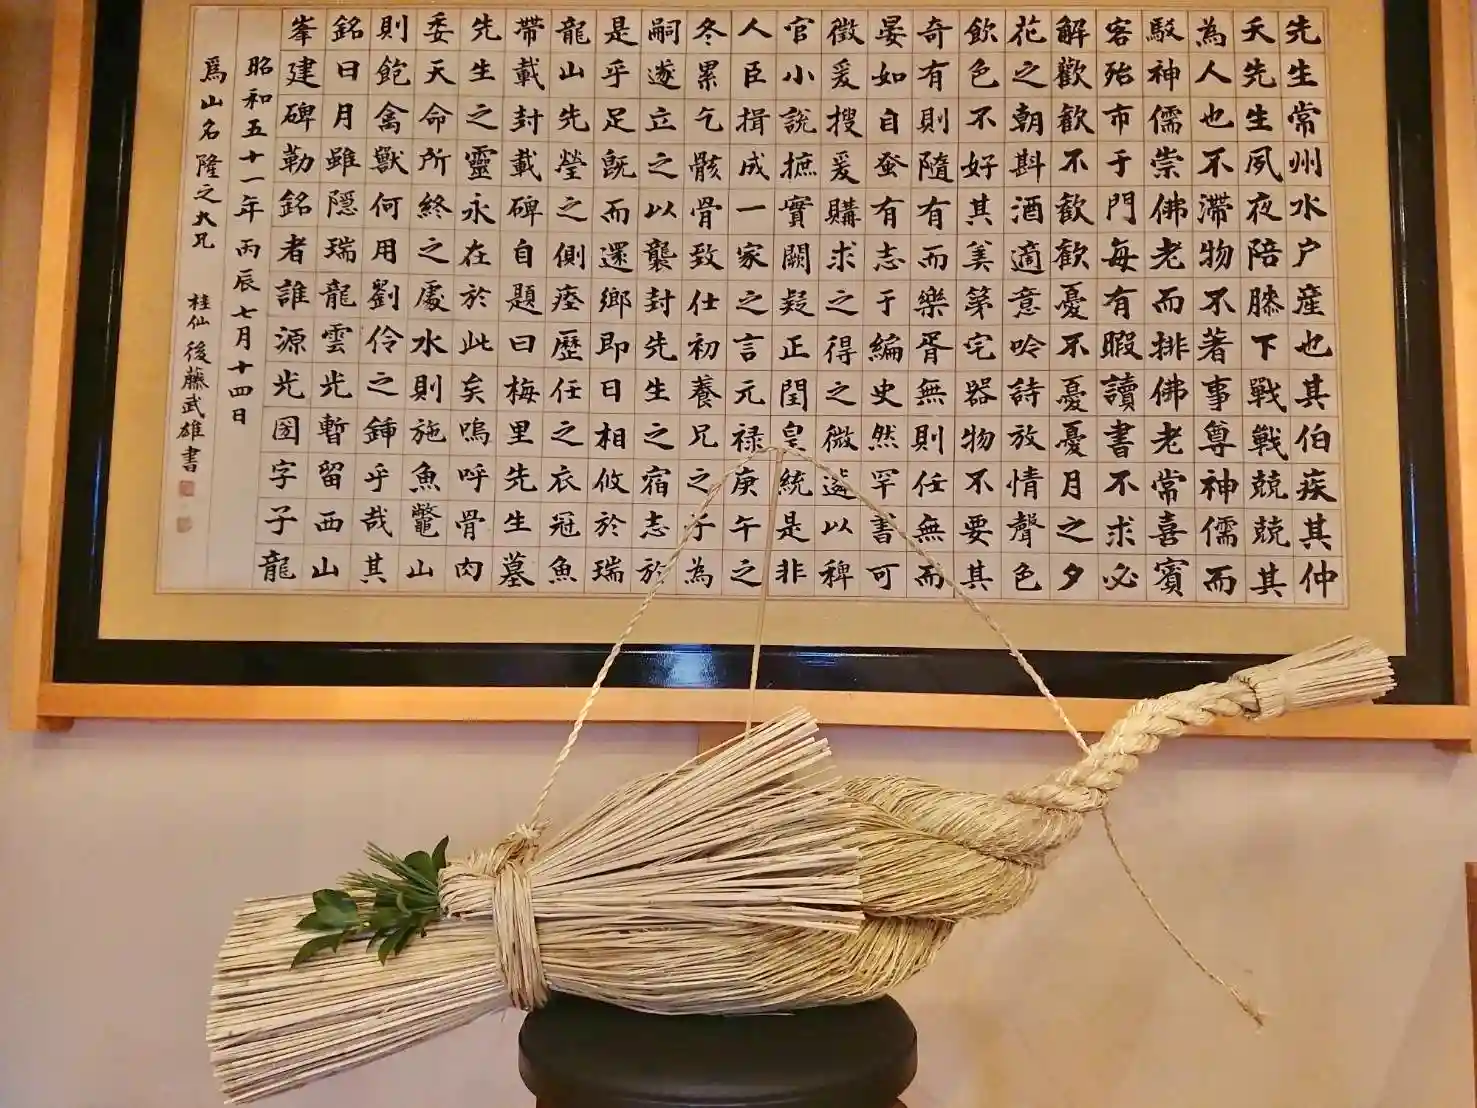 先生常州水户産也其伯疾其仲
夭先生夙夜陪膝下戦戦競競其
為人也不滞物不著事尊神儒而
駁神儒崇佛老而排佛老常喜賓
客殆市于門毎有暇讀書不求必
解歡歡不歡歡憂不憂憂月之夕
花之朝斟酒適意吟詩放情聲色
飲色不好其美第宅器物不要其
奇有則隨有而樂胥無則任無而
晏如自蚤有志于編史然罕書可
徴爰搜爰購求之得之微遴以稗
官小説摭實闕疑正閏皇統是非
人臣揖成一家之言元禄庚午之
冬累乞骸骨致仕初養兄之子為
嗣遂立之以襲封先生之宿志於
是乎足既而還郷即日相攸於瑞
龍山先塋之側瘞歴任之衣冠魚
帶載封載碑自題曰梅里先生墓
先生之靈永在於此矣嗚呼骨肉
委天命所終之處水則施魚鼈山
則飽禽獸何用劉伶之鍤乎哉其
銘曰月雖隠瑞龍雲光暫留西山
峯建碑勒銘者誰源光圀字子龍
昭和五十一年丙辰七月十四日
爲山名隆之大兄 桂仙 後藤武雄書